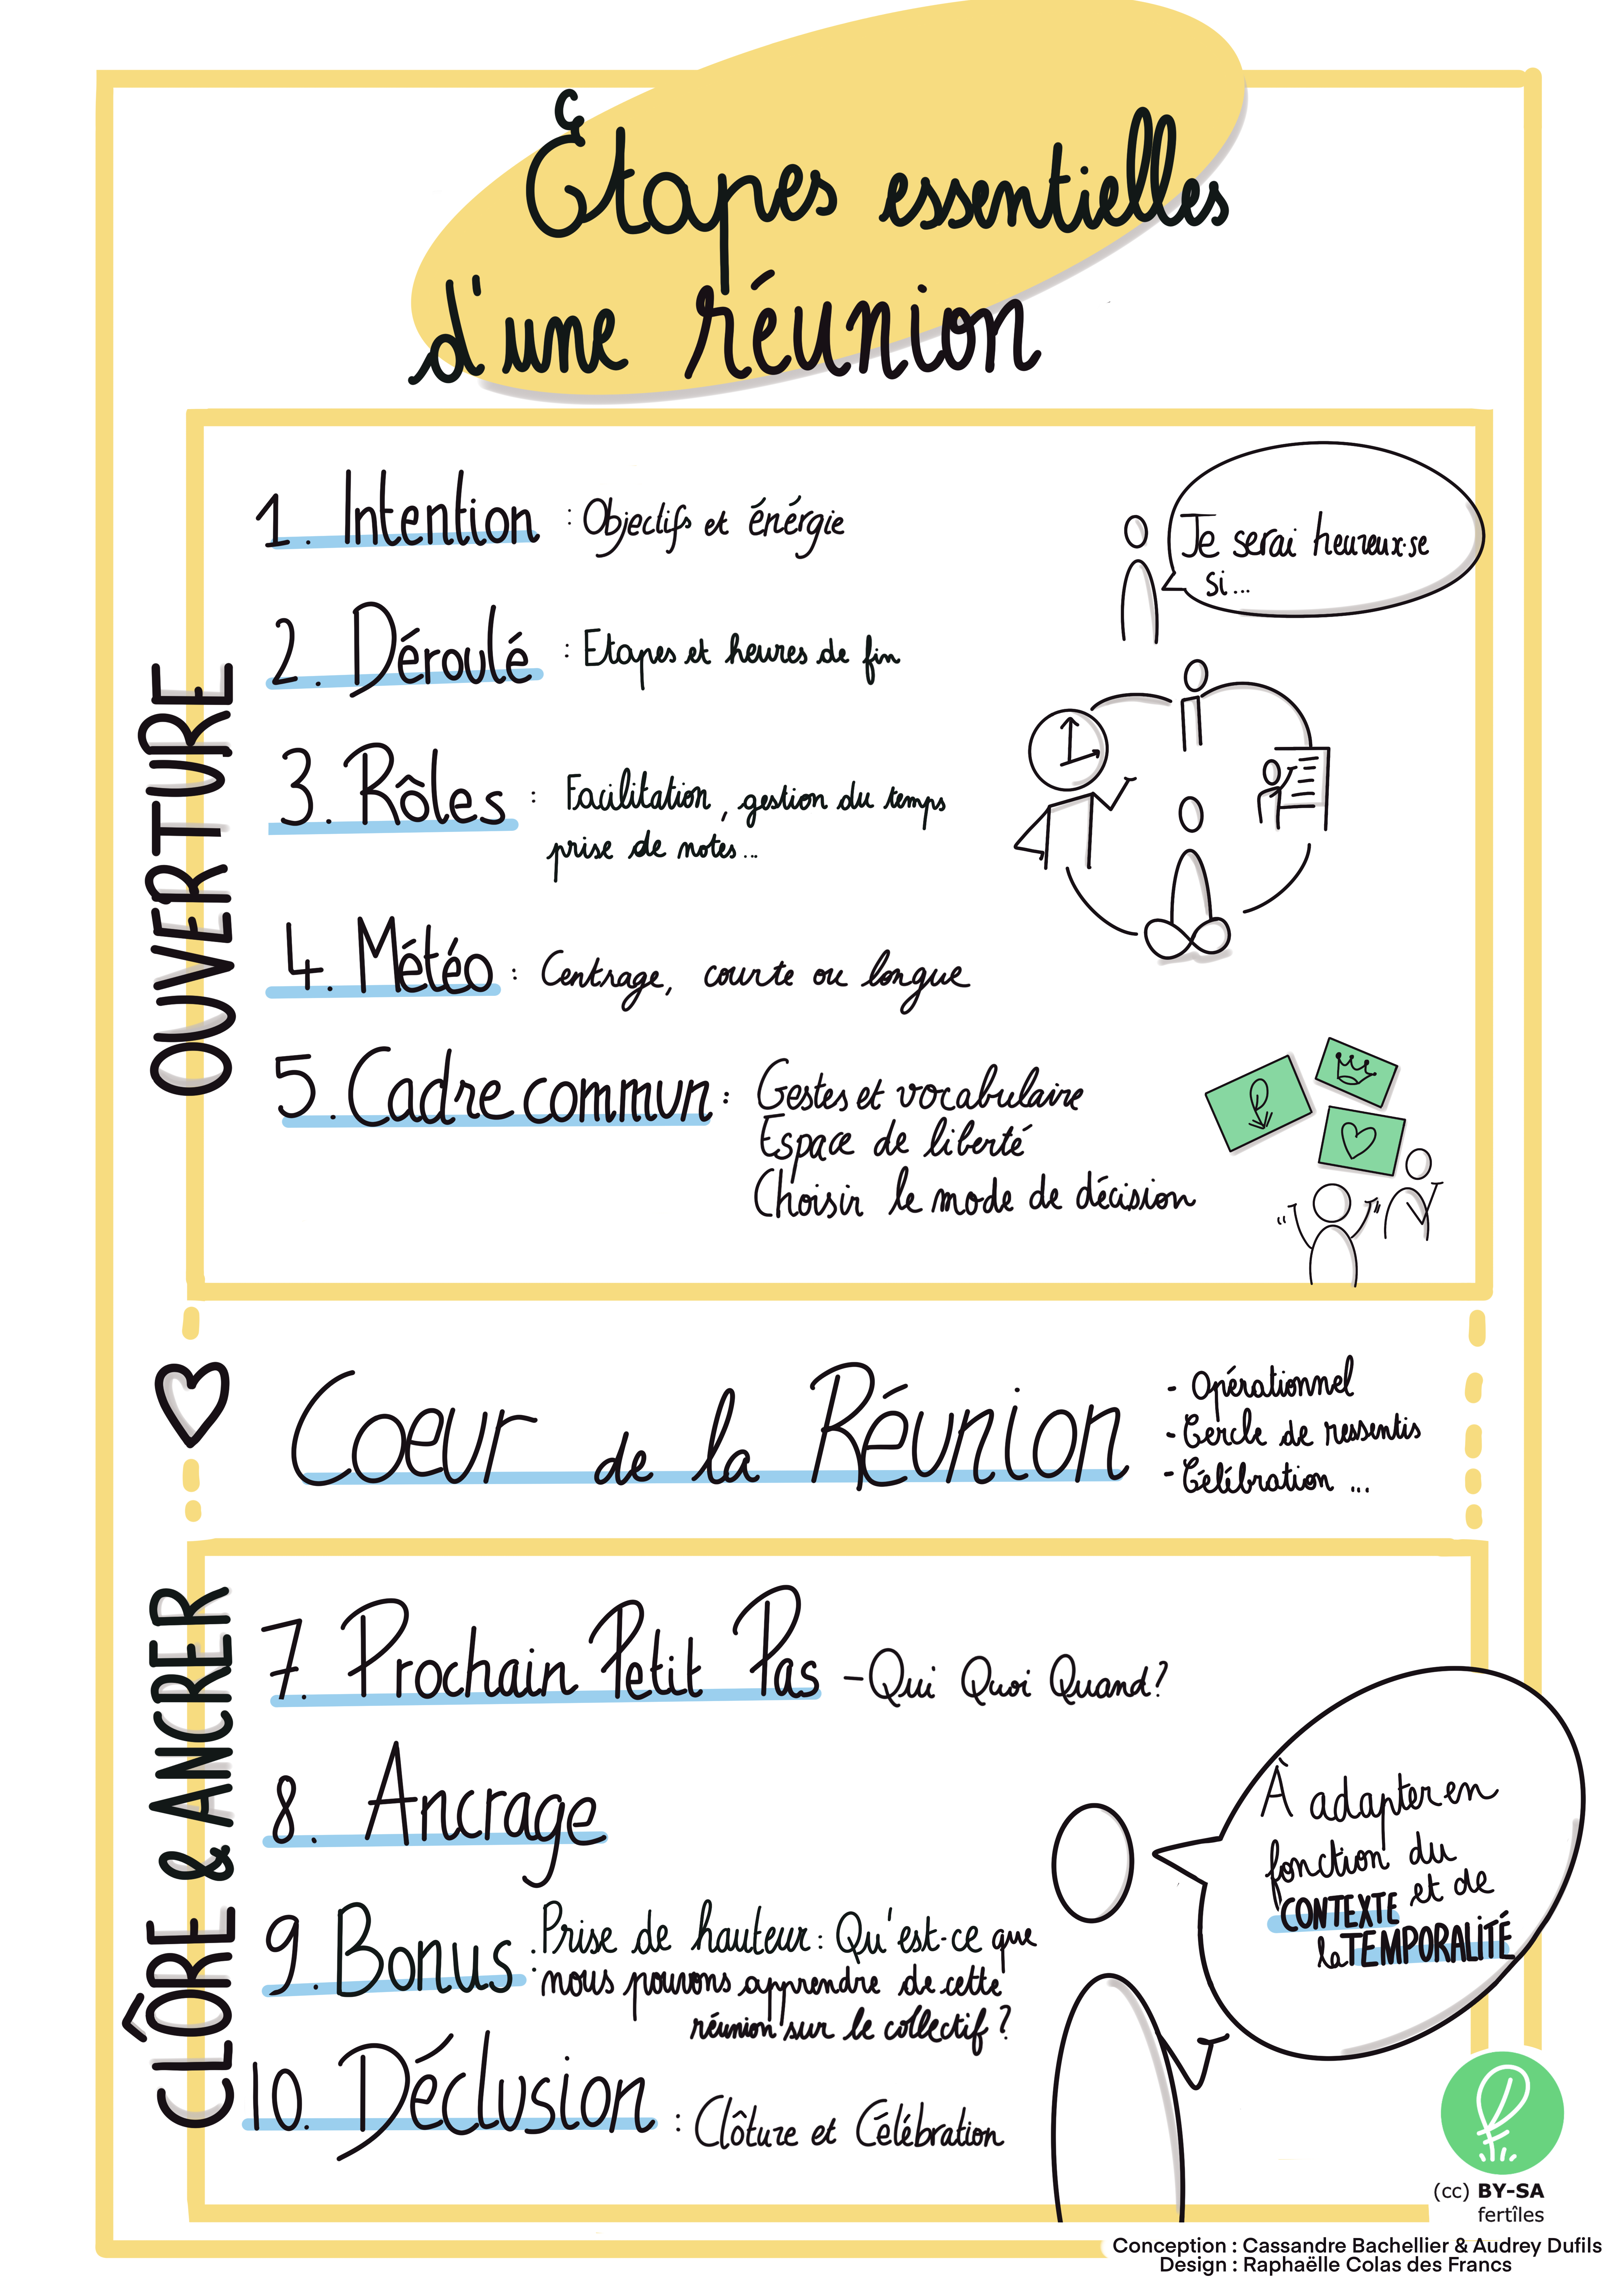 Étapes essentielles
d'une réunion
OUVERTURE
1. Intention : Objectifs et énérgie
Je serai heureux·se
si...
2. Déroulé : Etapes et heures de fin
3. Rôles : Facilitation, gestion du temps
prise de notes...
4. Météo : Centrage, courte ou longue
5. Cadre commun : Gestes et vocabulaire
Espace de liberté
Choisir le mode de décision
Coeur de la Réunion
- Opérationnel
- Cercle de ressentis
- Célébration ...
CLÔRE & ANCRER
7. Prochain Petit Pas - Qui Quoi Quand?
8. Ancrage
9. Bonus : Prise de hauteur : Qu'est-ce que
nous pouvons apprendre de cette
réunion sur le collectif ?
10. Déclusion : Clôture et Célébration
À adapter en
fonction du
CONTEXTE et de
la TEMPORALITÉ
(cc) BY-SA
fertîles
Conception : Cassandre Bachellier & Audrey Dufils
Design : Raphaëlle Colas des Francs